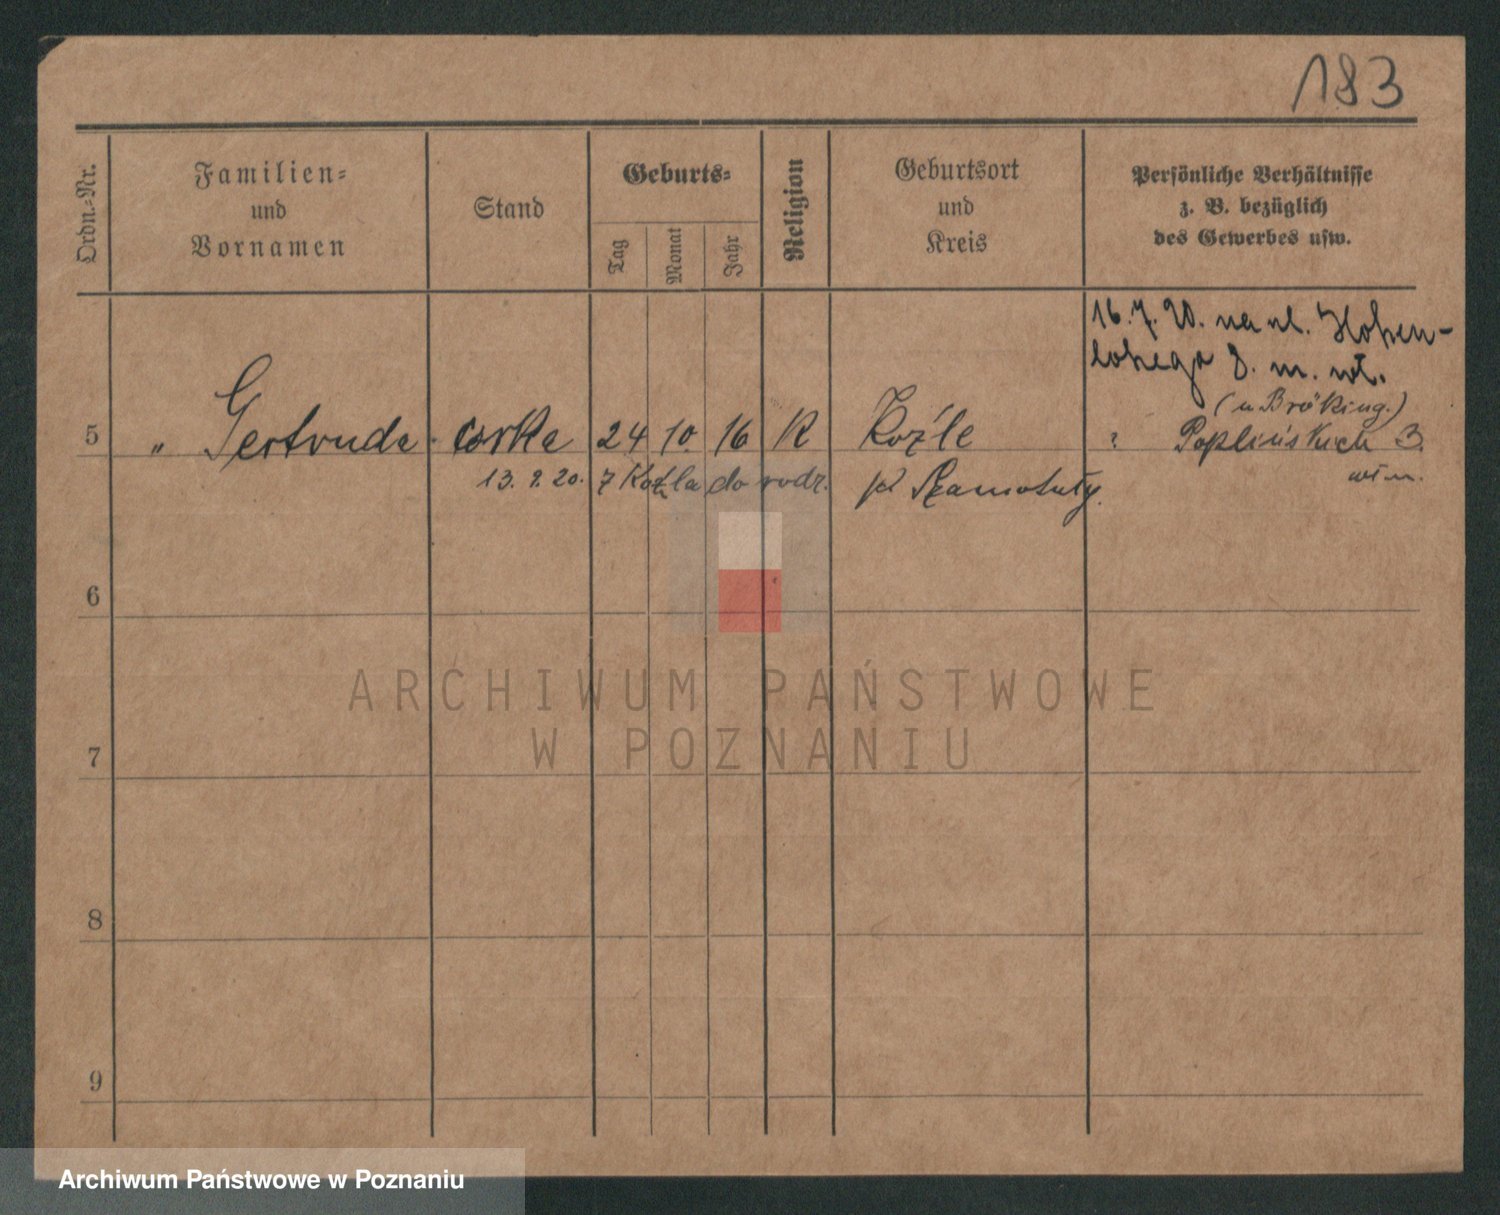 183
Ordn.-Nr.
Familien-
und
Vornamen
Stand
Geburts-
Tag
Monat
Jahr
Religion
Geburtsort
und
Kreis
Persönliche Verhältnisse
z. B. bezüglich
des Gewerbes usw.
16.7.20. na ul. Hohen-
lohego 8. m. wł.
(u Bröking.)
5 " Gertruda córka 24 10. 16 K Koźle Poplińskich 3.
13. 9. 20. z Kotla do rodz. Szamotuły
6
7
8
9
ARCHIWUM PAŃSTWOWE
W POZNANIU
Archiwum Państwowe w Poznaniu